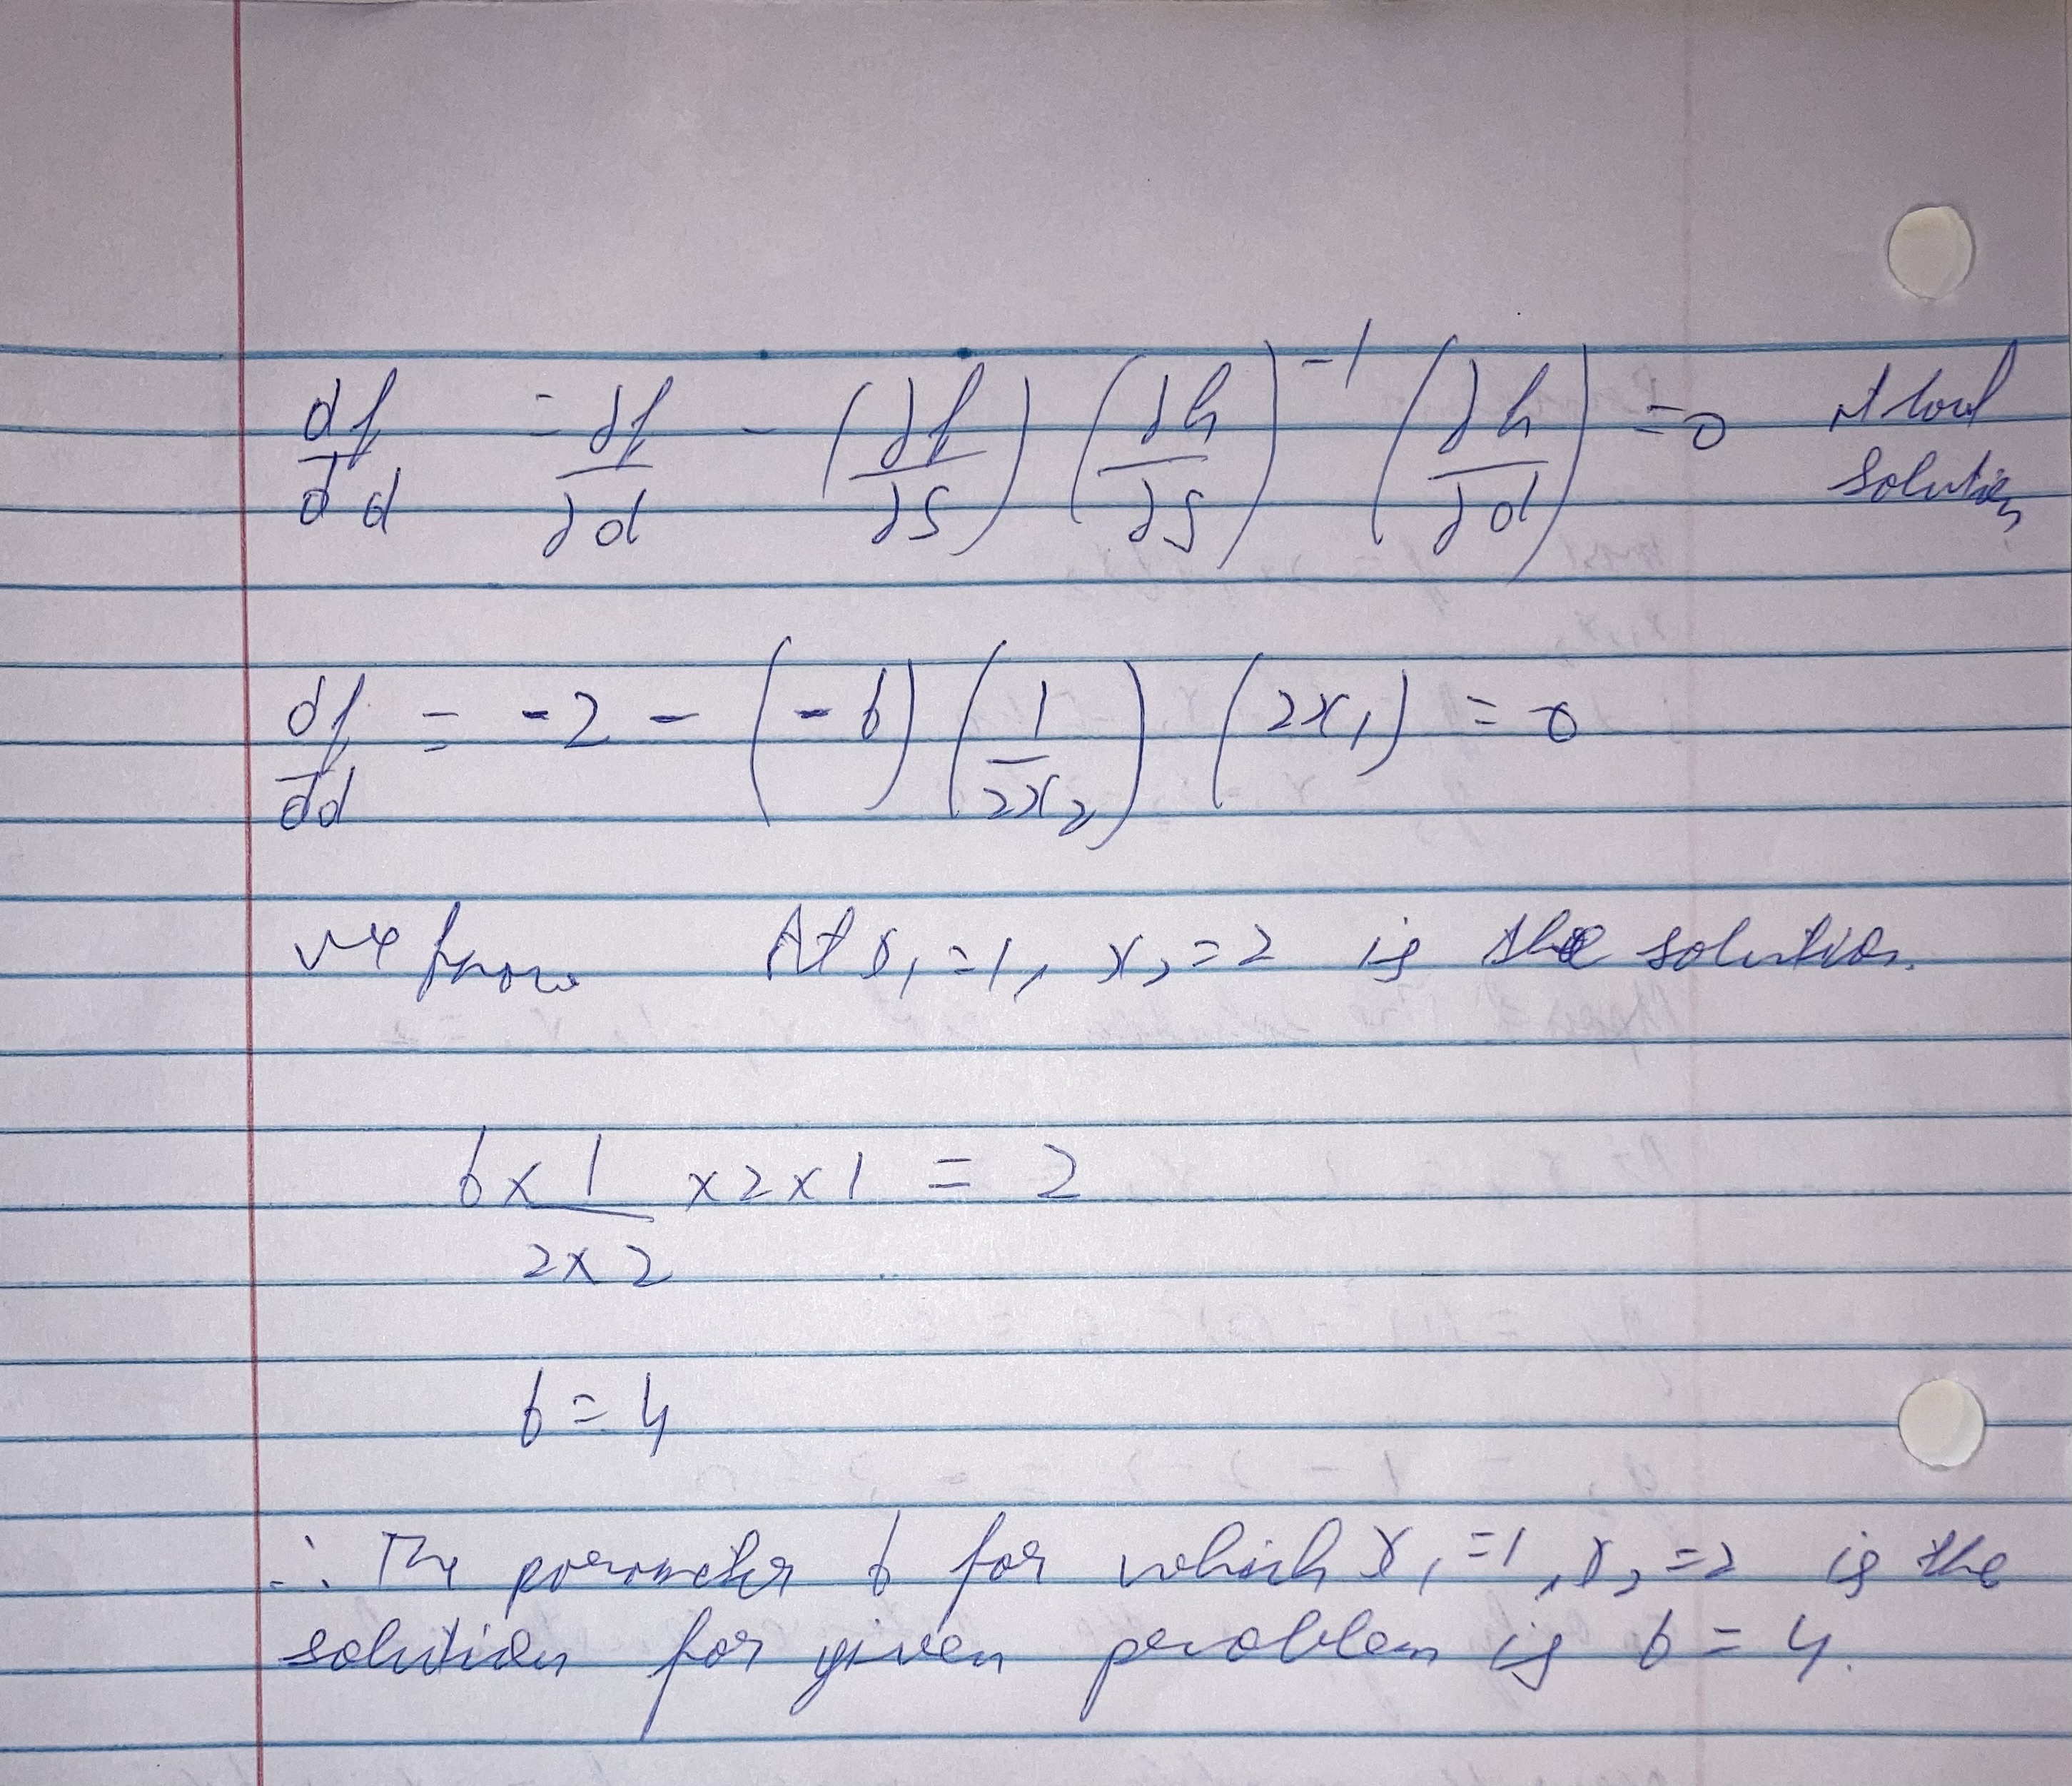 df/dd = ∂f/∂d - (∂f/∂s) (∂h/∂s)^-1 (∂h/∂d) = 0 at local
solution
df/dd = -2 - (-b) (1/2x₂) (2x₁) = 0
we know At x₁=1, x₂=2 is the solution.
b x 1/2x2 x2x1 = 2
b = 4
∴ The parameter b for which x₁=1, x₂=2 is the
solution for given problem is b = 4.